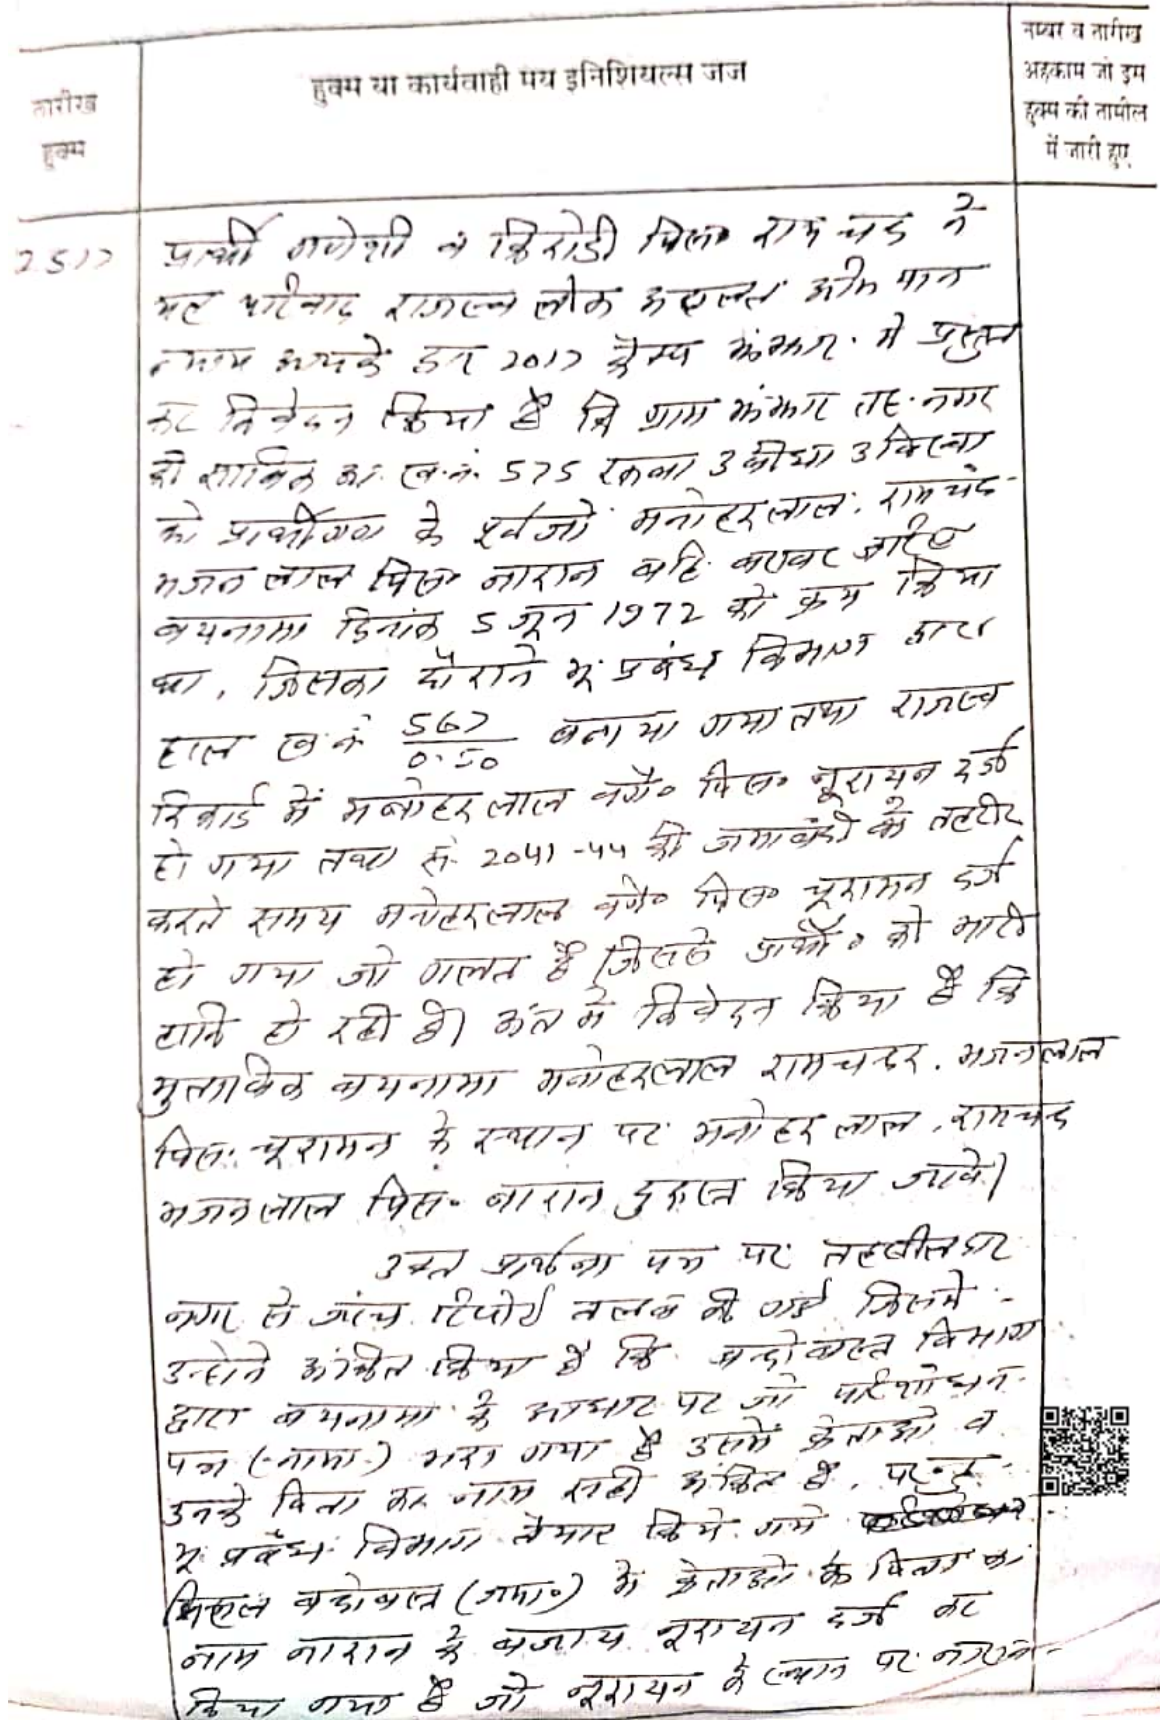 तारीख
हुक्म
हुक्म या कार्यवाही मय इनिशियल्स जज
नम्बर व तारीख
अहकाम जो इस
हुक्म की तामील
में जारी हुए
प्रार्थी गणेशी व किरोडी पिस० रामचंद ने
यह परिवाद राजस्व लोक अदालत अभियान
न्याय आपके द्वार 2017 कैम्प झंझार में प्रस्तुत
कर निवेदन किया है कि ग्राम झंझार तह. नगर
की साबिक आ. ख.नं. 575 रकबा 3 बीघा 3 बिस्वा
को प्रार्थीगण के पूर्वजों मनोहरलाल, रामचंद
भजनलाल पिस० नारान बहि. बराबर जरिए
बयनामा दिनांक 5 जून 1972 को क्रय किया
था, जिसका दौराने भू प्रबंध विभाग द्वारा
हाल ख नं 567/0.50 बनाया गया तथा राजस्व
रिकार्ड में मनोहरलाल वगै० पिस० नूरायन दर्ज
हो गया तथा सं. 2041-44 की जमाबंदी के तहरीर
करते समय मनोहरलाल वगै० पिस० चूरामन दर्ज
हो गया जो गलत है जिससे प्रार्थी० को भारी
हानि हो रही है। अंत में निवेदन किया है कि
मुताबिक बयनामा मनोहरलाल रामचन्दर, भजनलाल
पिस. चूरामन के स्थान पर मनोहरलाल, रामचन्द
भजनलाल पिस० नारान दुरुस्त किया जावे।
उक्त प्रार्थना पत्र पर तहसीलदार
नगर से जांच रिपोर्ट तलब की गई जिसमें
उन्होंने अंकित किया है कि बन्दोबस्त विभाग
द्वारा बयनामा के आधार पर जो परिशोधन
पत्र (नामा.) भरा गया है उसमें क्रेताओं व
उनके पिता का नाम सही अंकित है, परन्तु
भू. प्रबंध विभाग तैयार किये गये
मिसल बंदोबस्त (जमा०) में क्रेताओं के पिता का
नाम नारान के बजाय नूरायन दर्ज कर
दिया गया है जो नूरायन के स्थान पर नारान